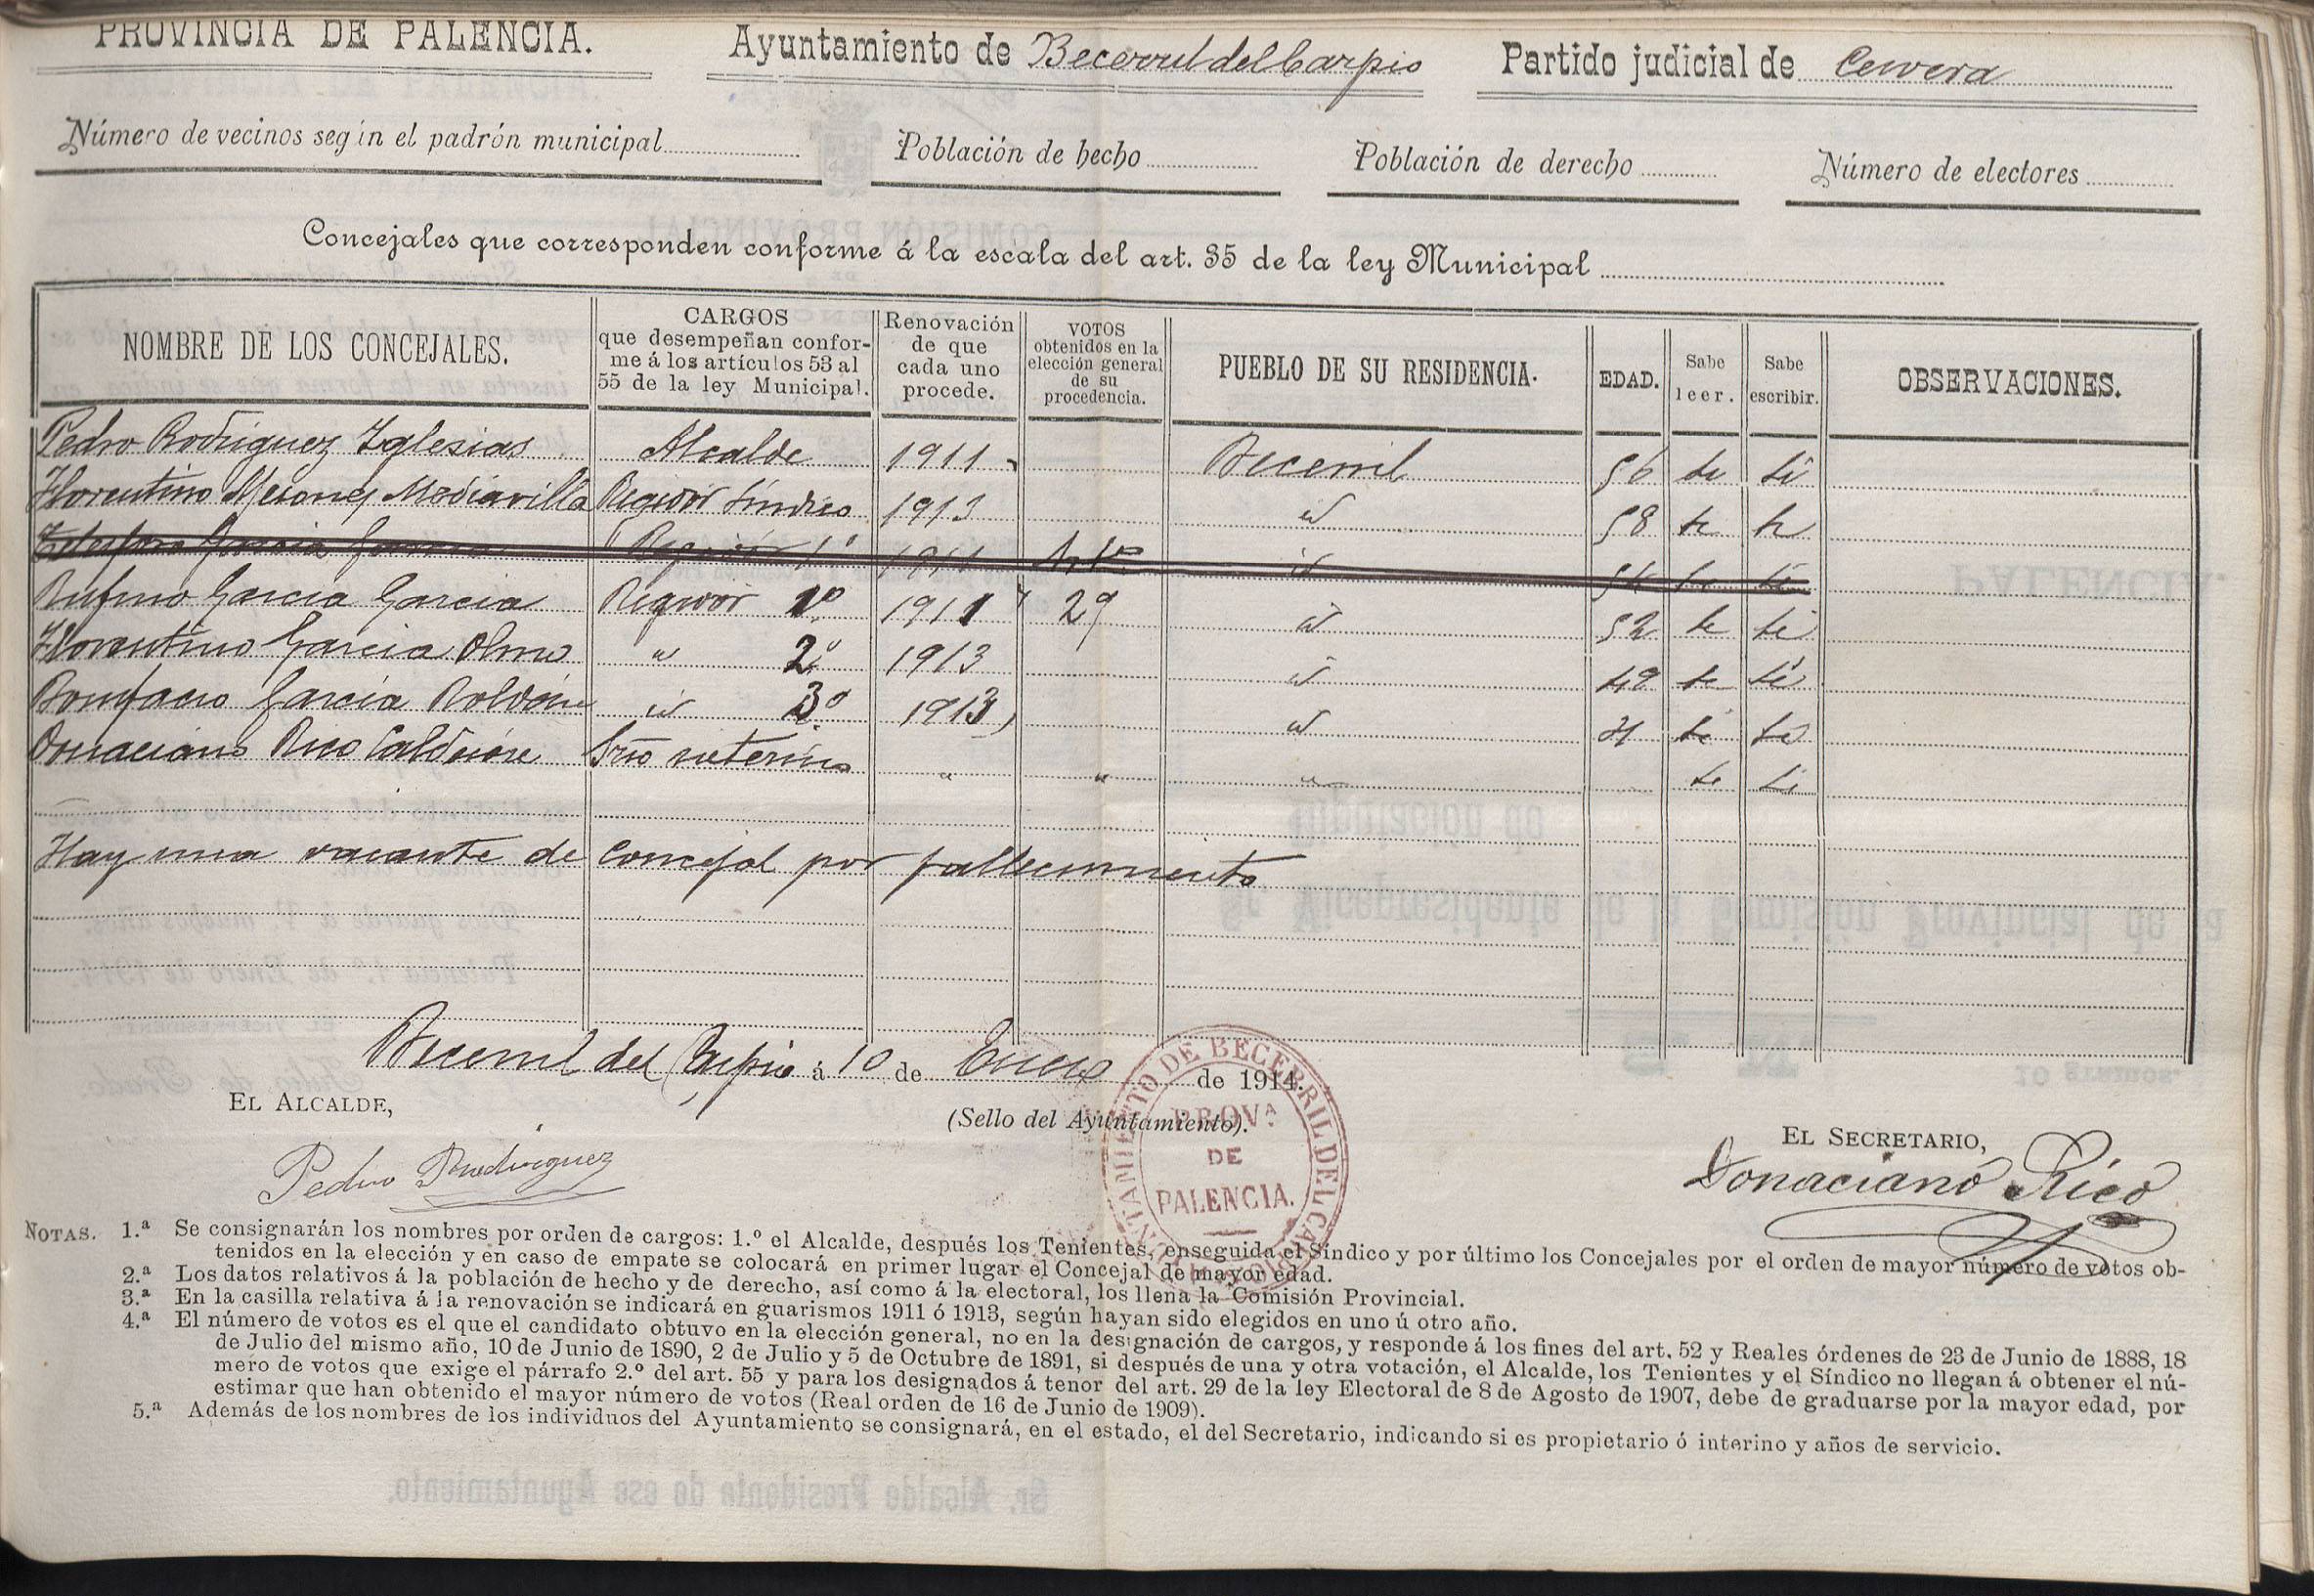 PROVINCIA DE PALENCIA. Ayuntamiento de Becerril del Carpio Partido judicial de Cervera
Número de vecinos según el padrón municipal Población de hecho Población de derecho Número de electores
Concejales que corresponden conforme á la escala del art. 35 de la ley Municipal
NOMBRE DE LOS CONCEJALES. CARGOS que desempeñan confor- Renovación VOTOS PUEBLO DE SU RESIDENCIA. EDAD. Sabe Sabe OBSERVACIONES.
me á los artículos 53 al de que obtenidos en la leer. escribir.
55 de la ley Municipal. cada uno elección general
procede. de su
procedencia.
Pedro Rodriguez Iglesias Alcalde 1911 Becerril 56 si si
Florentino Mesones Mediavilla Regidor Síndico 1913 id 58 si si
Telesforo Garcia Regidor 1º 1911 id si si
Rufino Garcia Garcia Regidor 1º 1911 29 id 52 si si
Florentino Garcia Olmo " 2º 1913 id 42 si si
Bonifacio Garcia Roldán id 3º 1913 id si si
Donaciano Rico Calderón Srio interino " " " si si
Hay una vacante de Concejal por fallecimiento
Becerril del Carpio á 10 de Enero de 1914.
EL ALCALDE,
(Sello del Ayuntamiento).
EL SECRETARIO,
Pedro Rodriguez
Donaciano Rico
AYUNTAMIENTO DE BECERRIL DEL CARPIO
PROVA
DE
PALENCIA.
NOTAS. 1.ª Se consignarán los nombres por orden de cargos: 1.º el Alcalde, después los Tenientes, enseguida el Síndico y por último los Concejales por el orden de mayor número de votos ob-
tenidos en la elección y en caso de empate se colocará en primer lugar el Concejal de mayor edad.
2.ª Los datos relativos á la población de hecho y de derecho, así como á la electoral, los llena la Comisión Provincial.
3.ª En la casilla relativa á la renovación se indicará en guarismos 1911 ó 1913, según hayan sido elegidos en uno ú otro año.
4.ª El número de votos es el que el candidato obtuvo en la elección general, no en la designación de cargos, y responde á los fines del art. 52 y Reales órdenes de 23 de Junio de 1888, 18
de Julio del mismo año, 10 de Junio de 1890, 2 de Julio y 5 de Octubre de 1891, si después de una y otra votación, el Alcalde, los Tenientes y el Síndico no llegan á obtener el nú-
mero de votos que exige el párrafo 2.º del art. 55 y para los designados á tenor del art. 29 de la ley Electoral de 8 de Agosto de 1907, debe de graduarse por la mayor edad, por
estimar que han obtenido el mayor número de votos (Real orden de 16 de Junio de 1909).
5.ª Además de los nombres de los individuos del Ayuntamiento se consignará, en el estado, el del Secretario, indicando si es propietario ó interino y años de servicio.